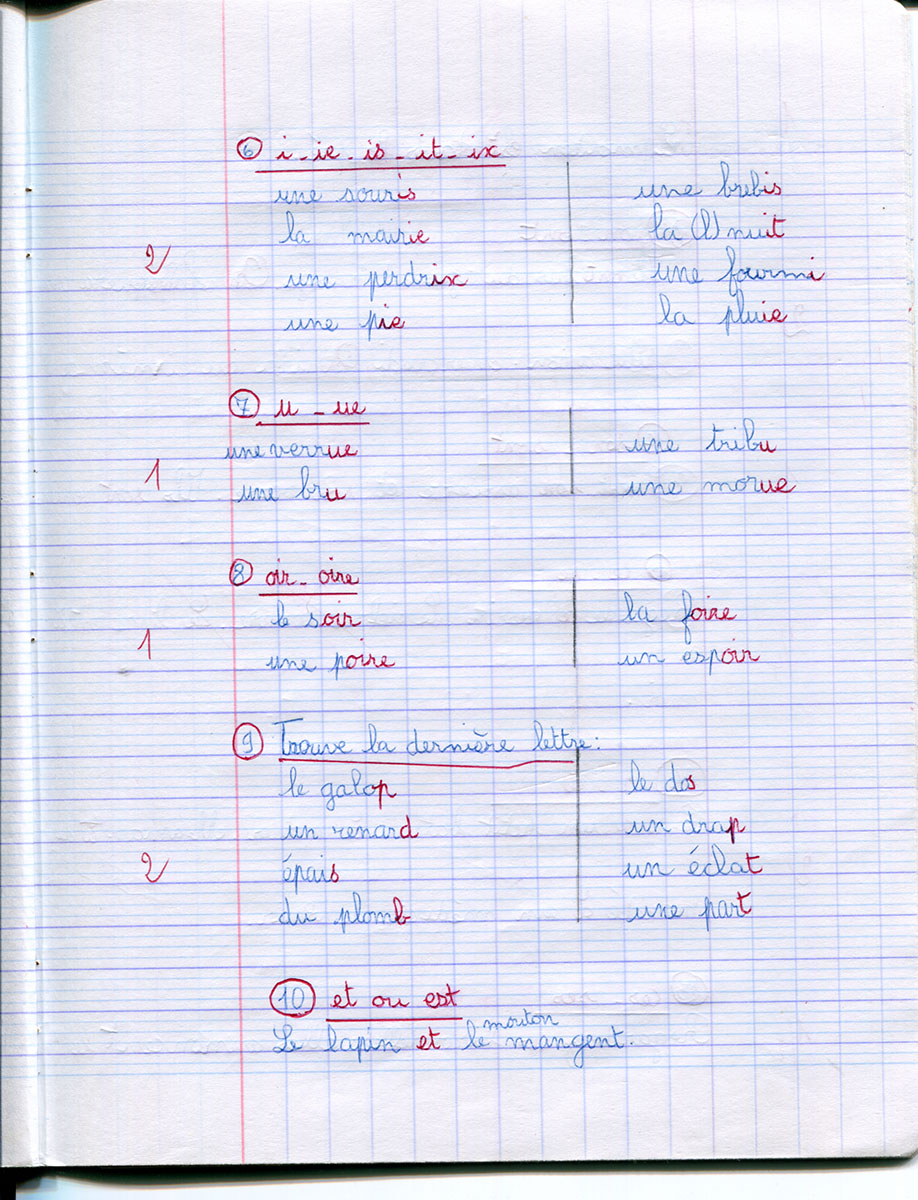 6 i - ie - is - it - ix
une souris
une brebis
la mairie
la (l) nuit
2
une perdrix
une fourmi
une pie
la pluie
7 u - ue
une verrue
une tribu
1
une bru
une morue
8 oir - oire
le soir
la foire
1
une poire
un espoir
9 Trouve la dernière lettre :
le galop
le dos
un renard
un drap
2
épais
un éclat
du plomb
une part
10 et ou est
mouton
Le lapin et le mangent.